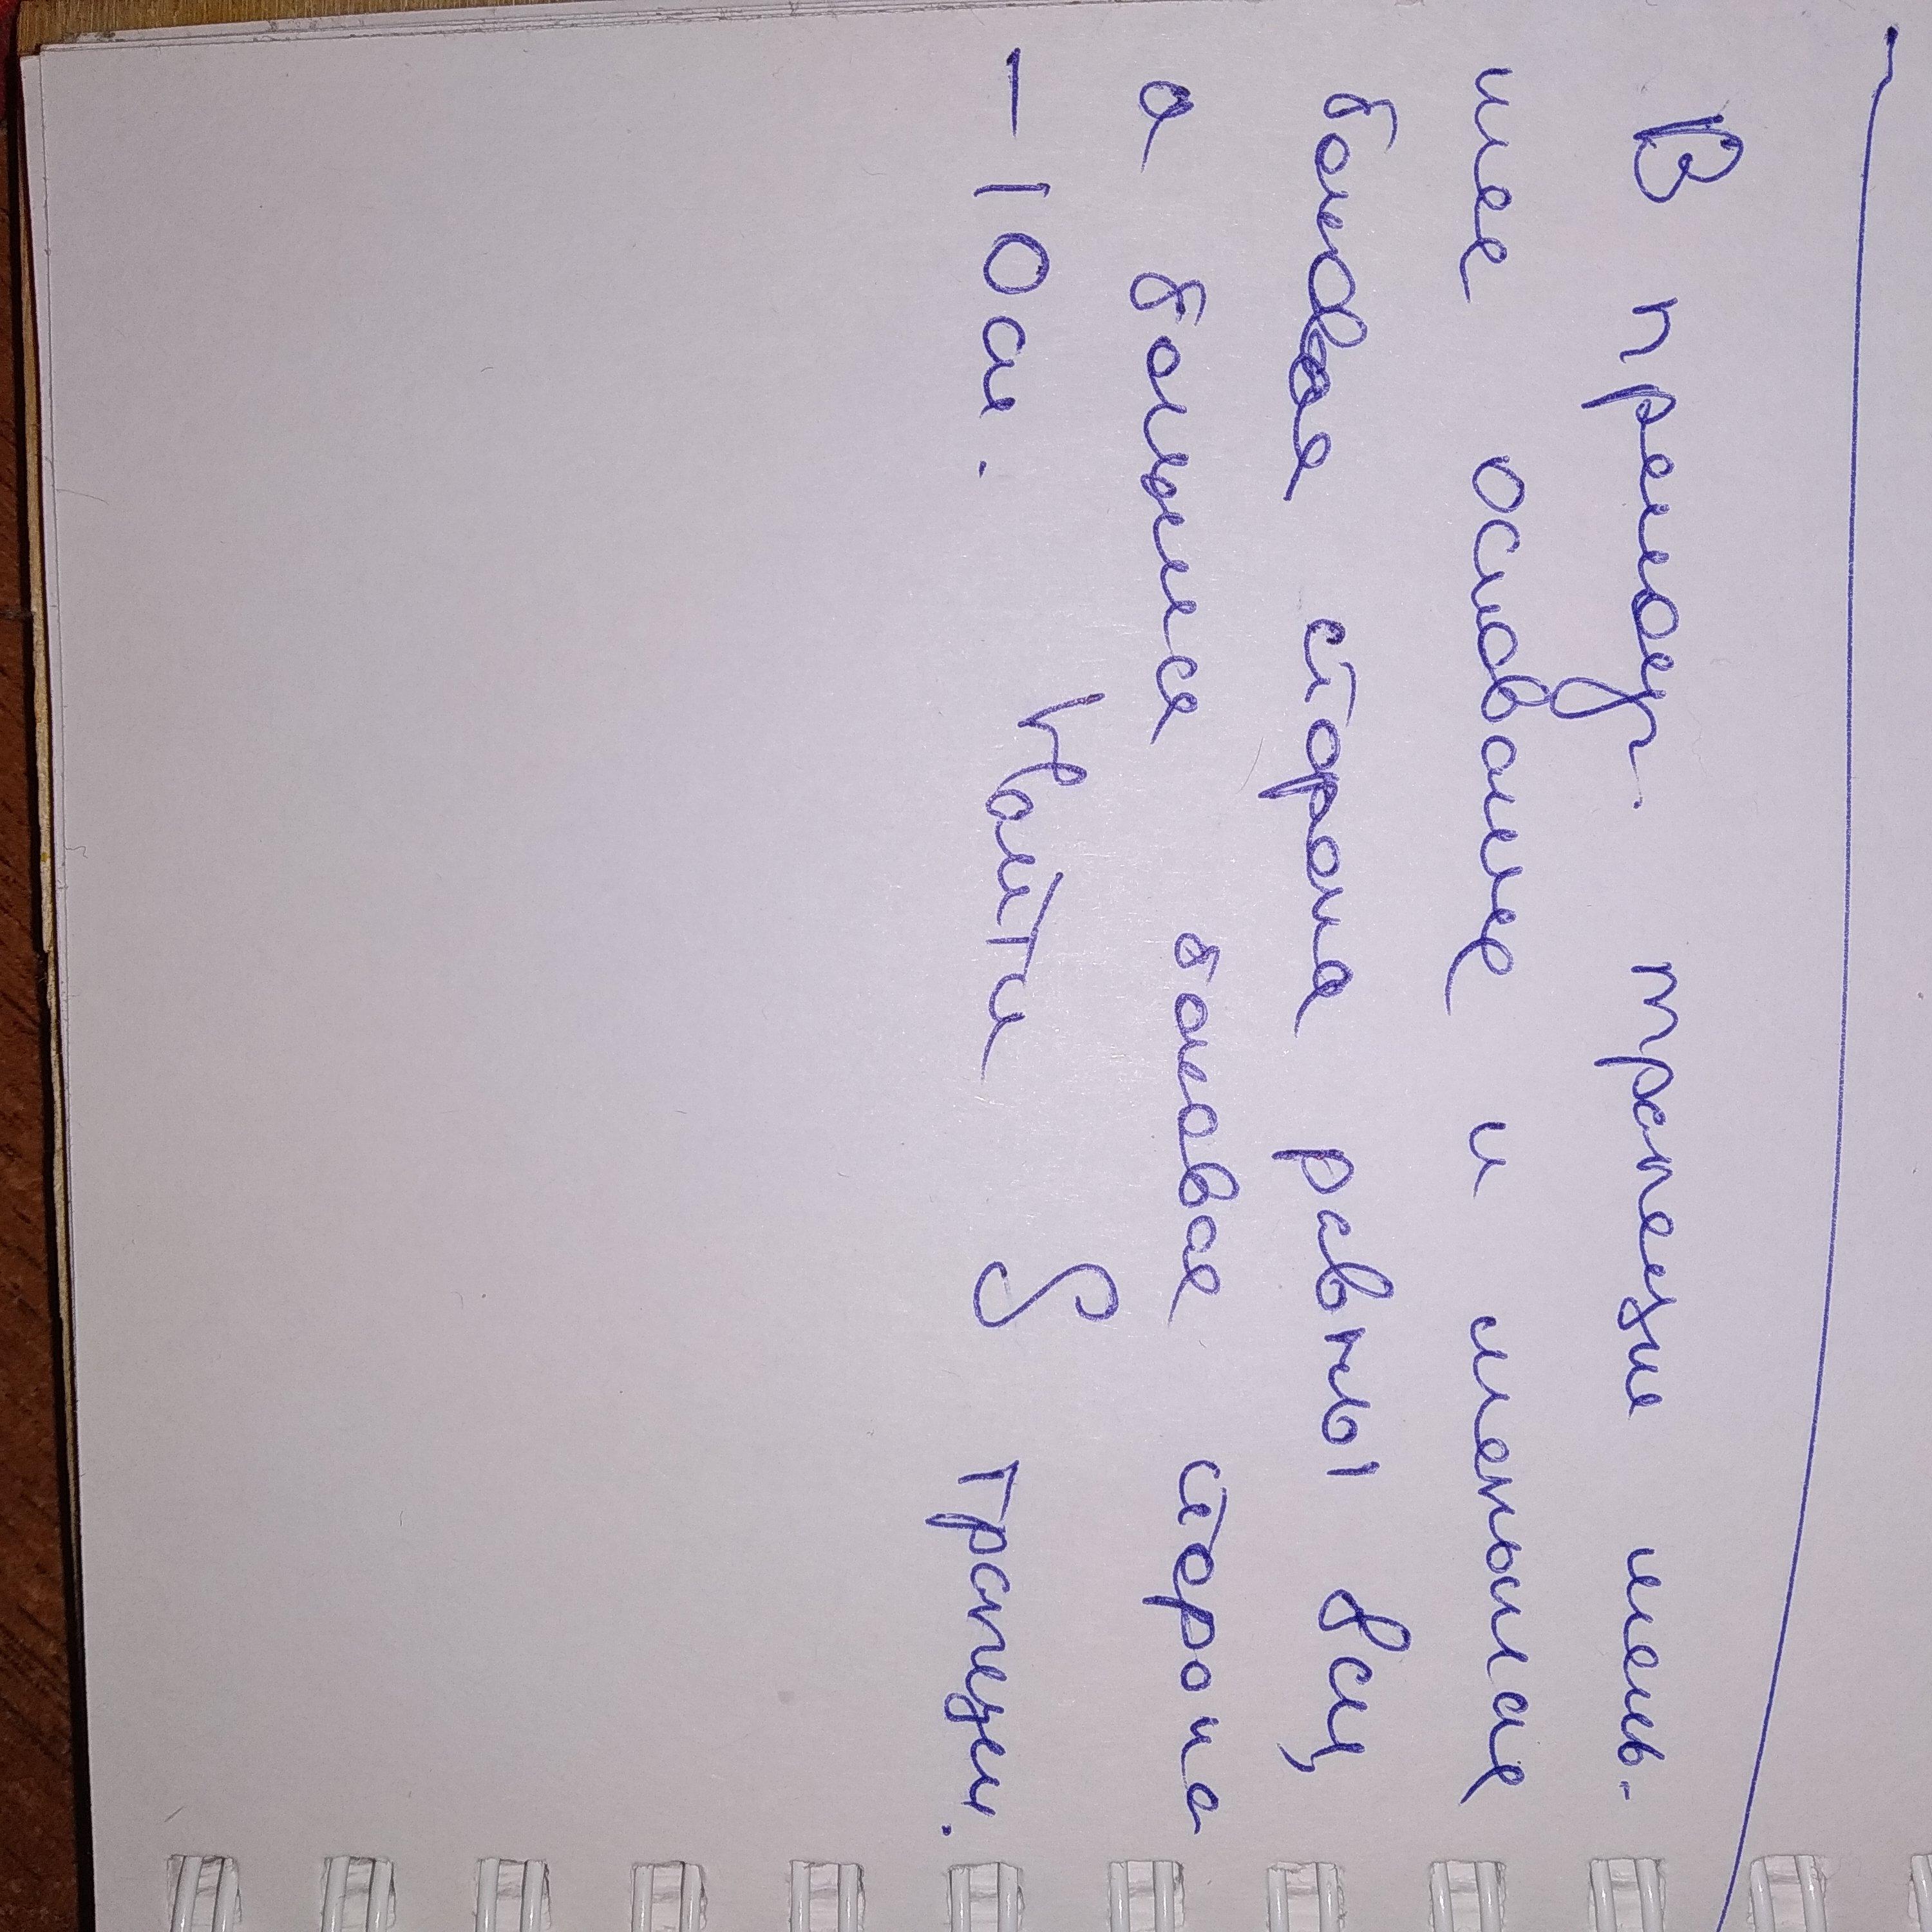 В прямоуг. трапеции мень-
шее основание и меньшая
боковая сторона равны 8см,
а большая боковая сторона
– 10см. Найти S трапеции.